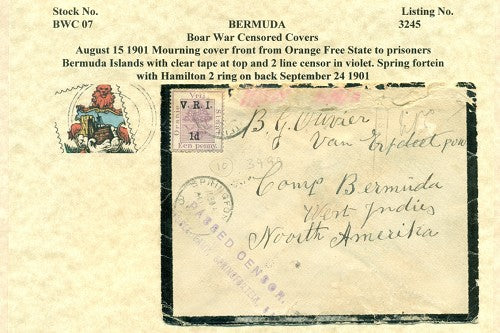 Stock No.
BWC 07
BERMUDA
Listing No.
3245
Boar War Censored Covers
August 15 1901 Mourning cover front from Orange Free State to prisoners
Bermuda Islands with clear tape at top and 2 line censor in violet. Spring fortein
with Hamilton 2 ring on back September 24 1901
Vrij
V. R. I.
1d
Een penny
B. G. Olivier
Van
3499
Camp Bermuda
West Indies
Noorth Amerika
PASSED CENSOR